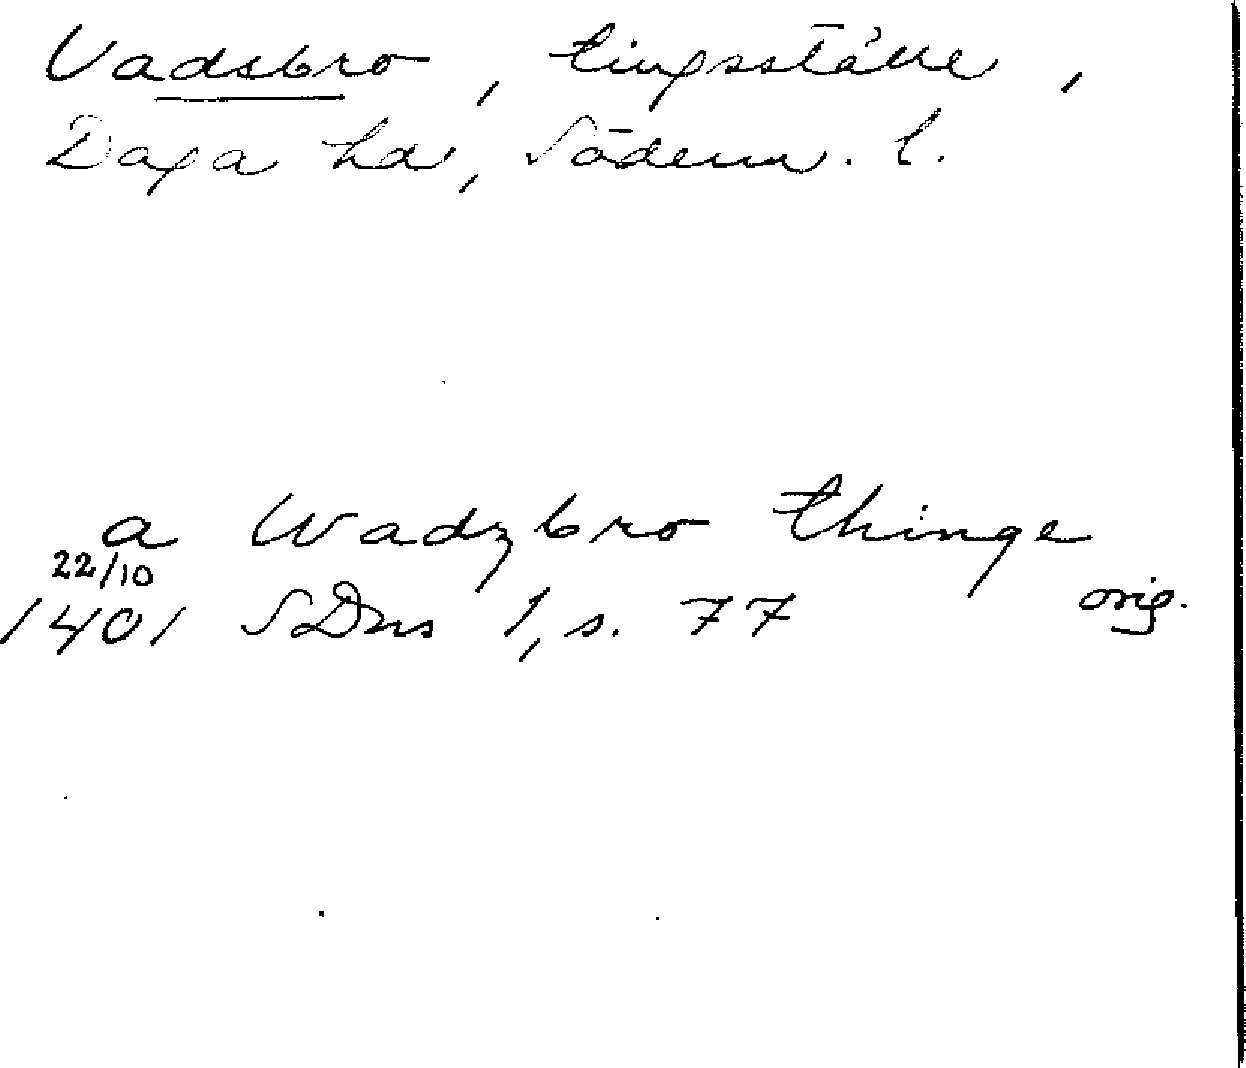 Vadsbro, tingsställe,
Daga hd, Söderm. l.
a Wadzbro thinge
22/10
1401 SDns 1, s. 77 orig.